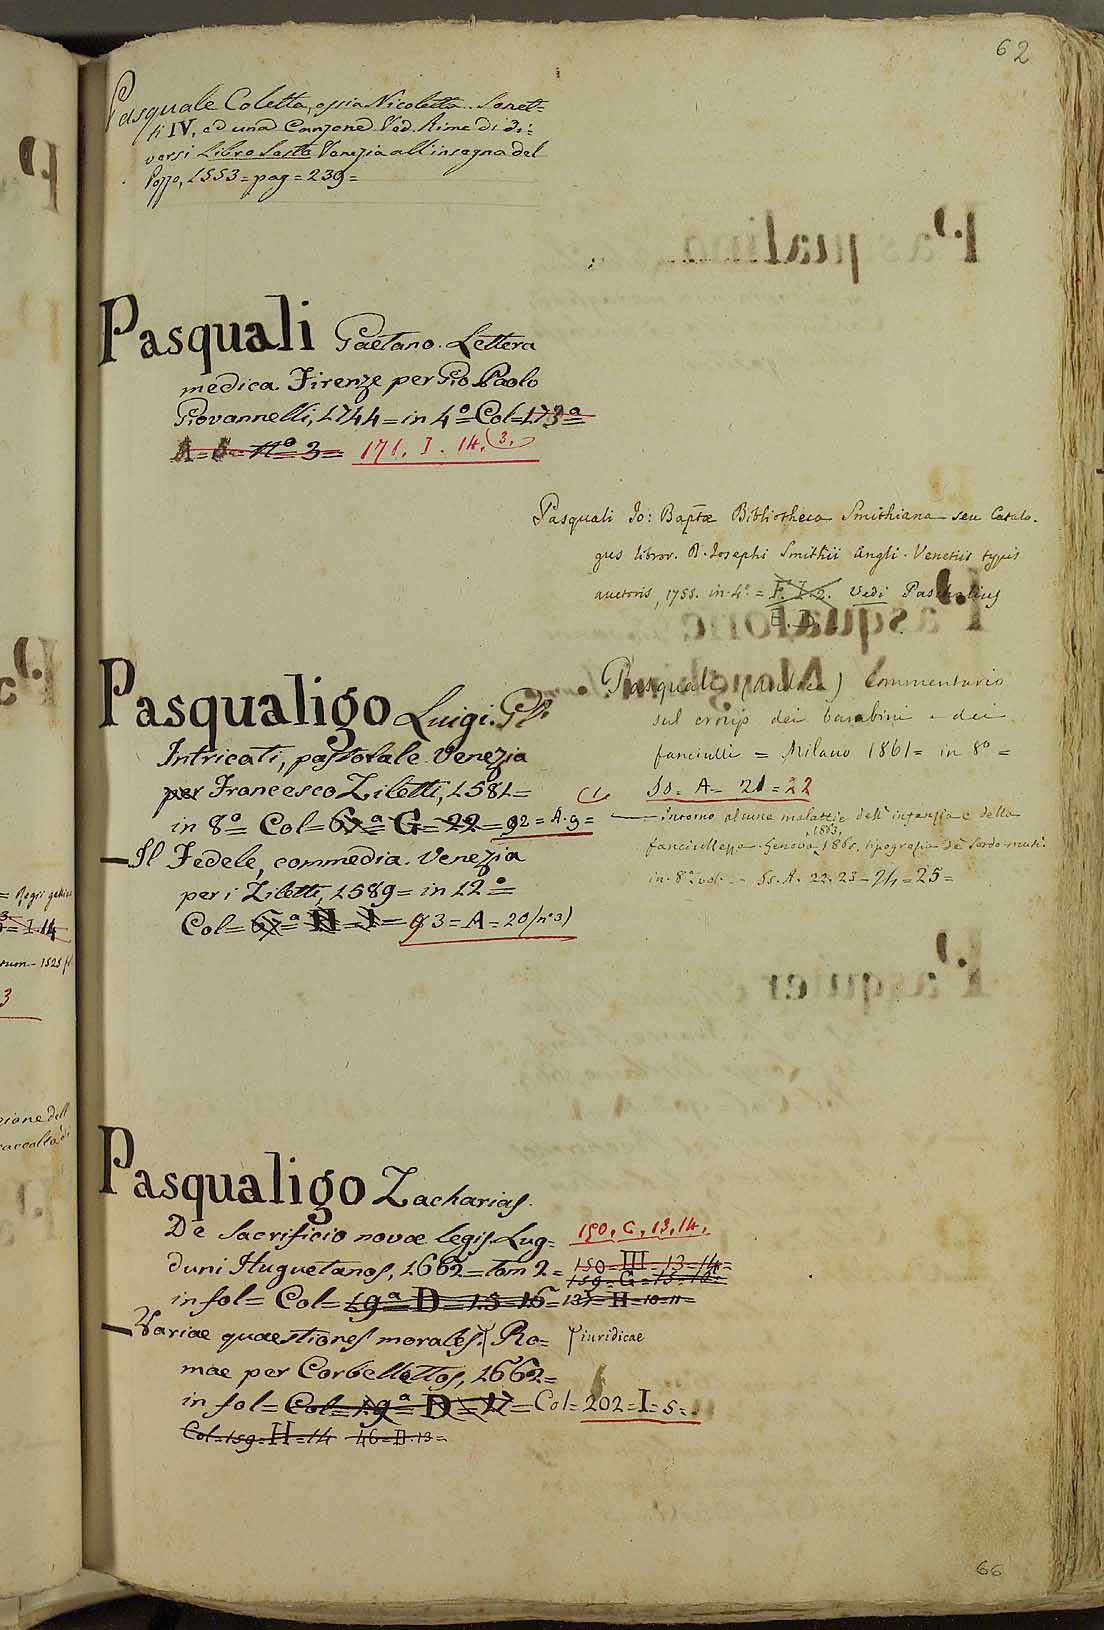 62
Pasquale Coletta, ossia Nicoletta. Sonet-
ti IV, ed una Canzone Ved. Rime di Di-
versi Libro Sesto Venezia all'insegna del
Pozzo, 1553 = pag = 239 =
Pasquali Gaetano. Lettera
medica Firenze per Gio Paolo
Giovannelli, 1744 = in 4º = Col = 173ª
A = nº 3 = 171. I. 14. (3.)
Pasquali Jo: Baptæ Bibliotheca Smithiana seu Catalo-
gus libror. D. Josephi Smithii Angli. Venetiis typis
auctoris, 1755. in 4º = F. I. 2. Vedi Paschalius
Pasqualigo Luigi. Gl'
Intricati, pastorale. Venezia
per Francesco Ziletti, 1581 =
in 8º = Col = 6ª = G = 22 = 92 = A. 9 =
— Il Fedele, commedia. Venezia
per i Ziletti, 1589 = in 12º =
Col = 6ª = H = I = 93 = A = 20 (nº 3)
Pasquali (Andrea) Commentario
sul croup dei bambini e dei
fanciulli = Milano 1861 = in 8º =
Ss = A = 21 = 22
— Intorno alcune malattie dell'infanzia e della
fanciullezza. Genova, 1863, 1865, tipografia de' Sordo-muti.
in 8º vol. = Ss. A. 22. 23 = 24 = 25 =
Pasqualigo Zacharias.
De Sacrificio novæ legis. Lug-
duni Huguetanos, 1662 = tom 2 =
in fol = Col = 19ª = D = 15 16 = 137 = H = 10 = 11 =
150. C. 13. 14.
150 = III = 13 = 14 =
159 = G = 15 = 16 =
— Variae quaestiones morales. Ro- iuridicae
mae per Corbellettos, 1662 =
in fol = Col = 19ª = D = 17 = Col = 202 = I = 5 =
Col = 159 = H = 14 46 = D. 13 =
66